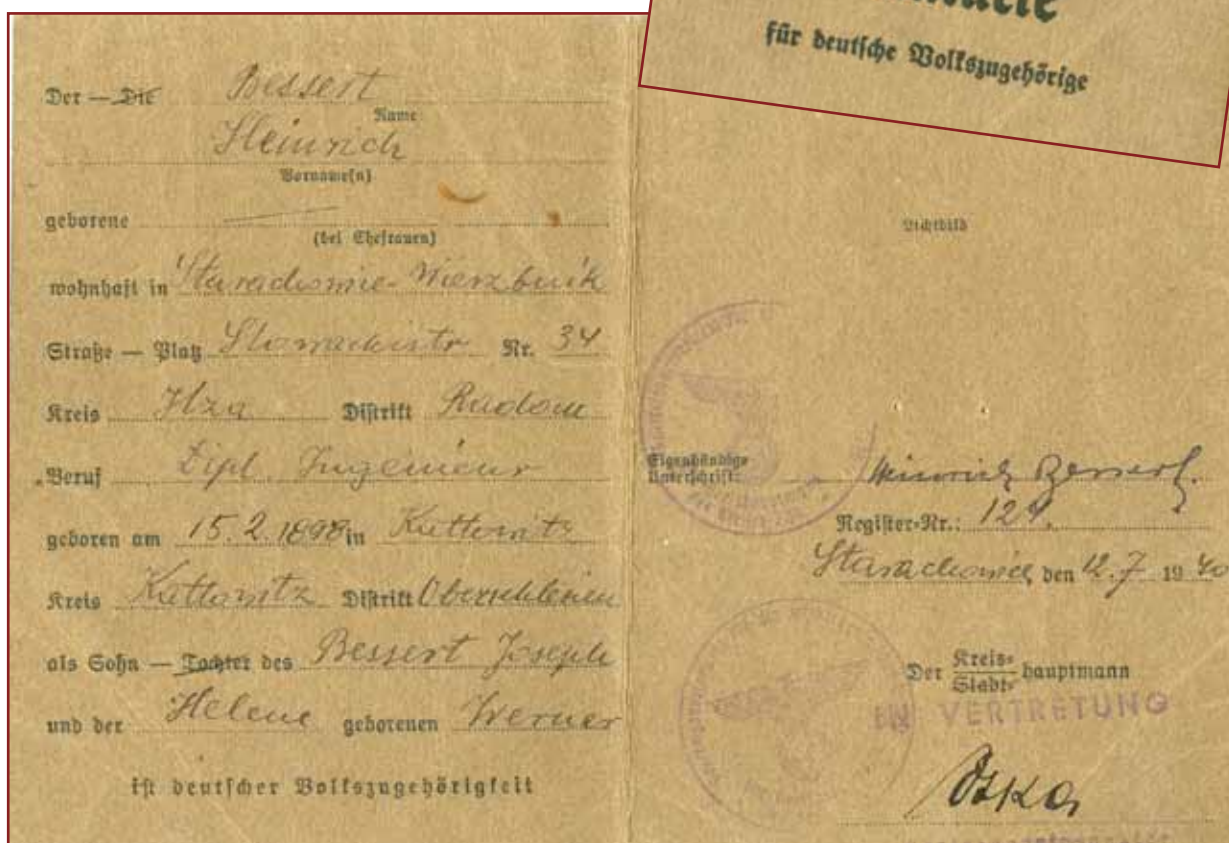 für deutsche Volkszugehörige
Der — Die Bessert
Name
Heinrich
Vorname(n)
geborene
(bei Ehefrauen)
wohnhaft in Starachowice-Wierzbnik
Straße — Platz Nr. 34
Kreis Ilza Distrikt Radom
Beruf Dipl. Ingenieur
geboren am 15.2.1898 in Kattowitz
Kreis Kattowitz Distrikt Oberschlesien
als Sohn — Tochter des Bessert Joseph
und der Helene geborenen Werner
ist deutscher Volkszugehörigkeit
Lichtbild
Eigenhändige
Unterschrift: Heinrich Bessert.
Register-Nr.: 124.
Starachowice, den 12.7 1940
Der Kreis-
Stadt- hauptmann
IN VERTRETUNG